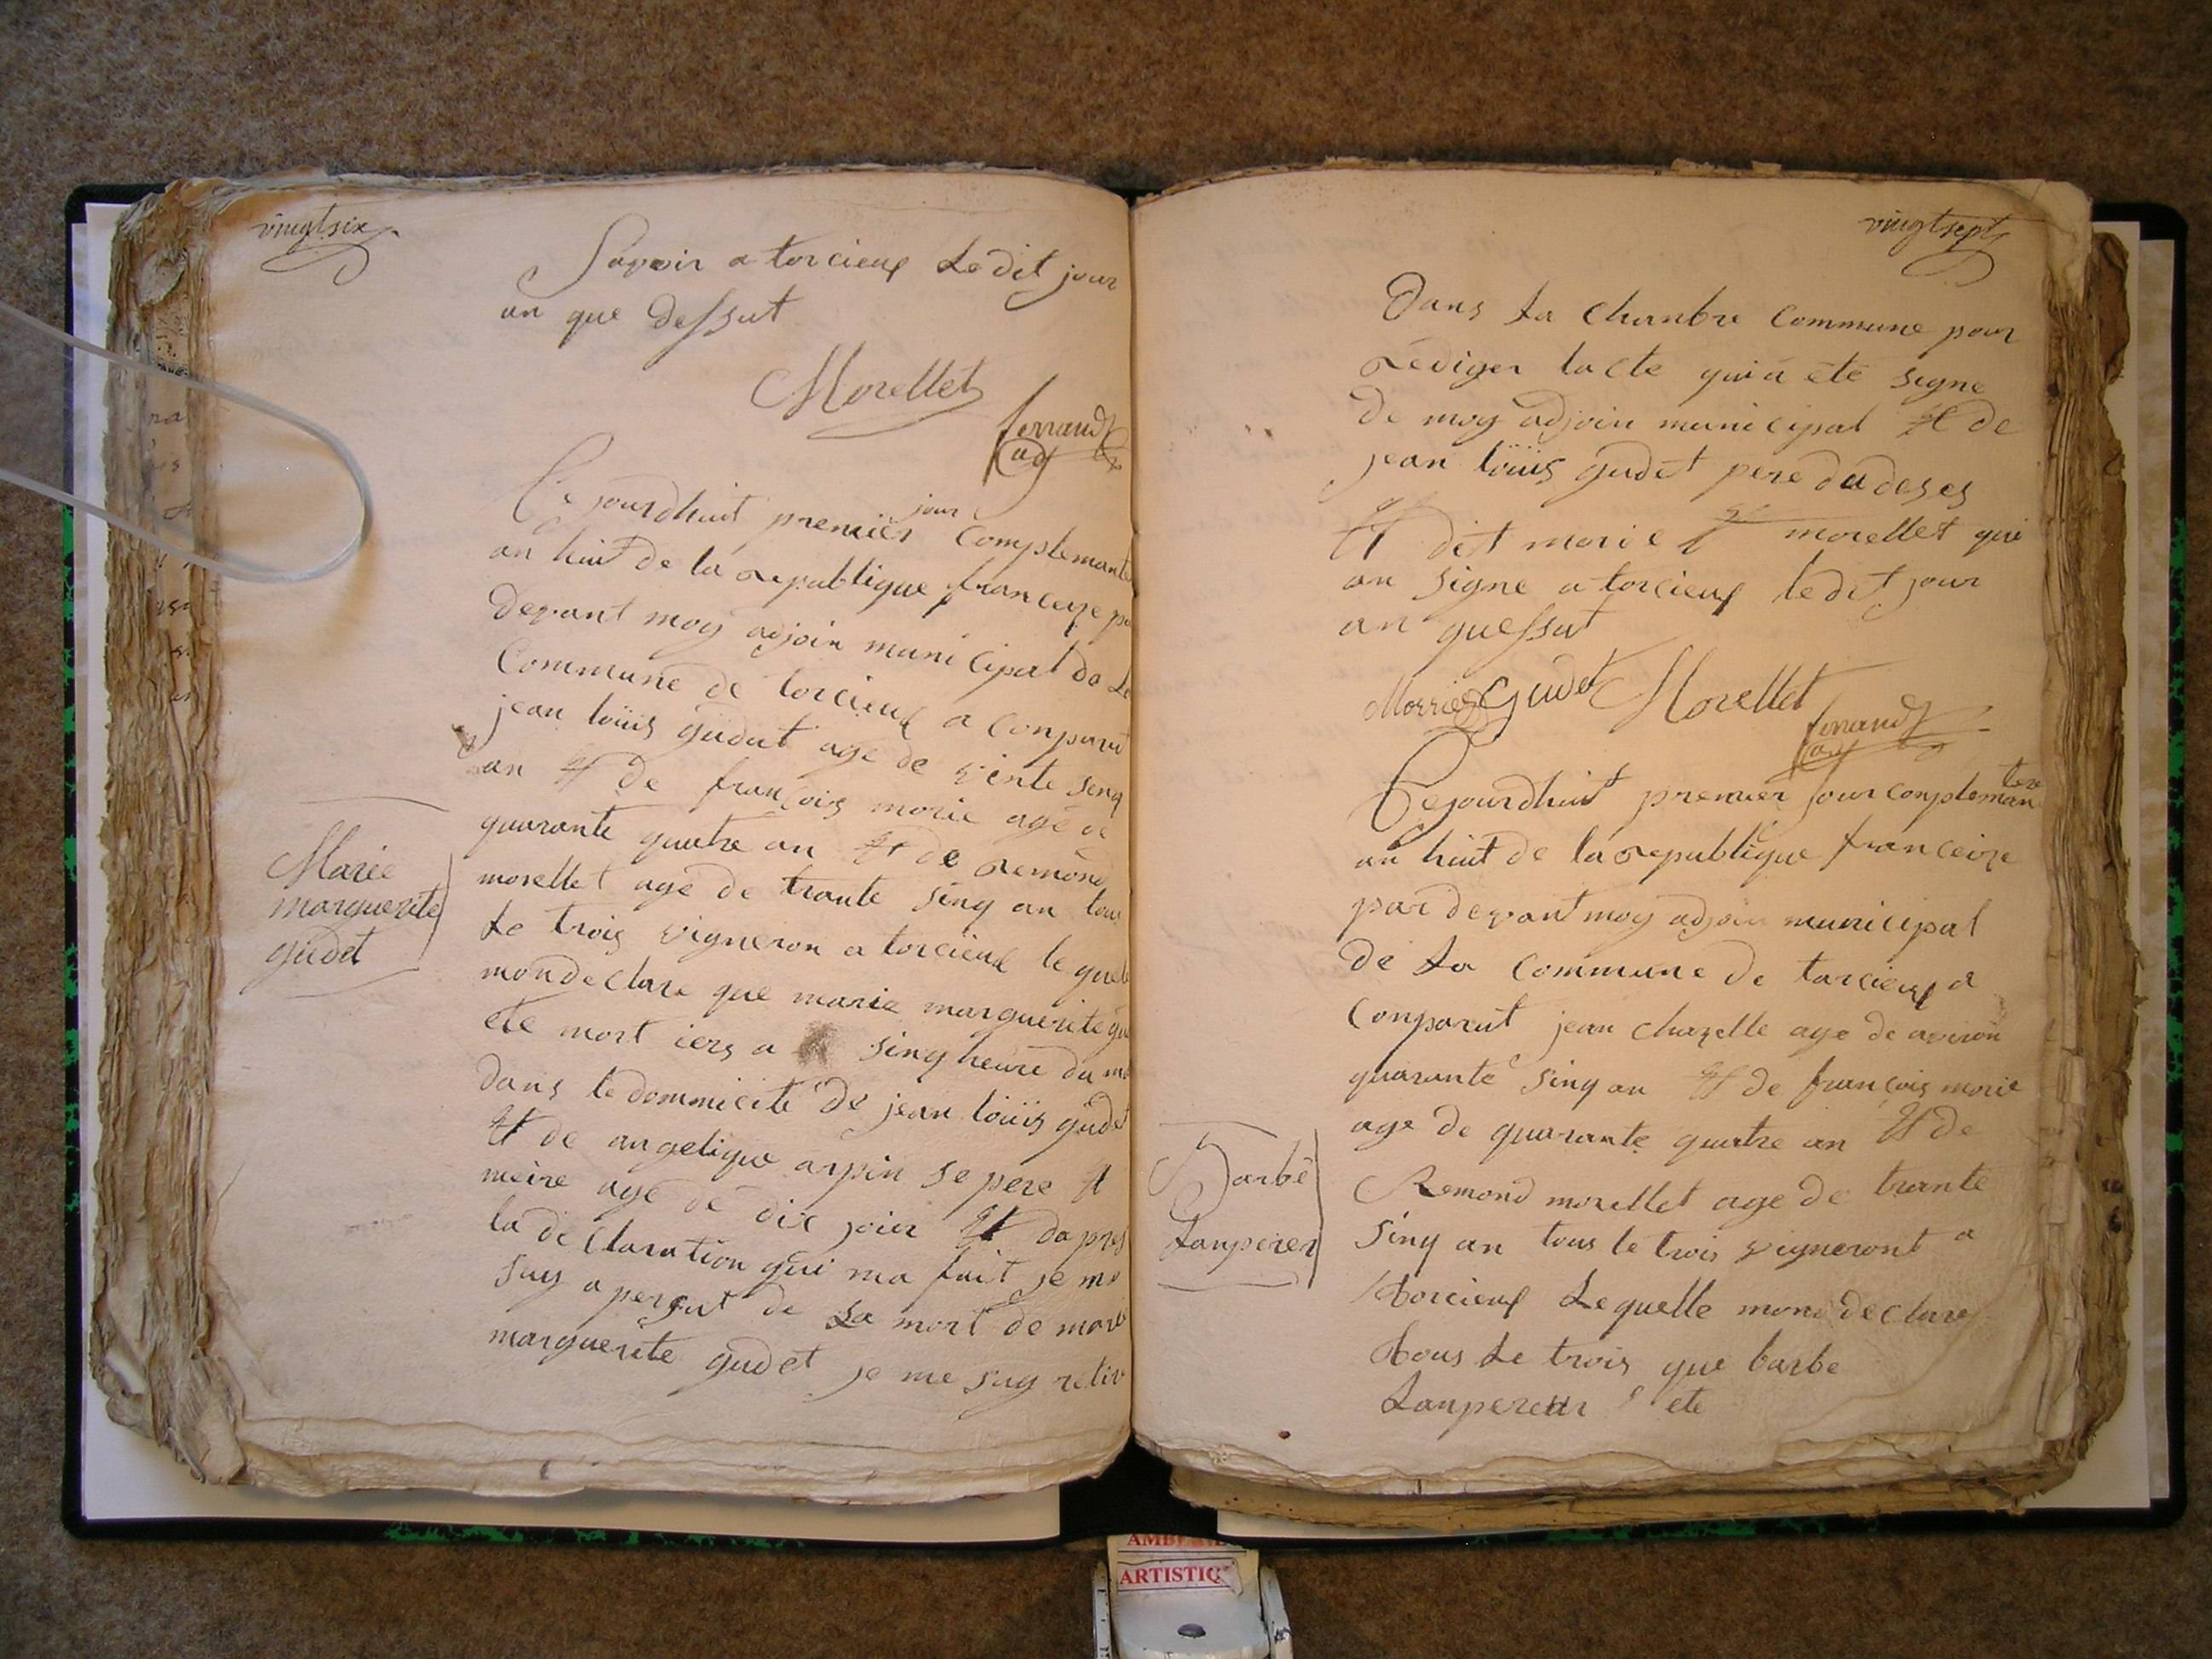 vingtsix
Savoir a torcieux Le dit jour
an que dessut
Morellet
ferrand
adj
Ce jourdhuit premier jour Complemante
an huit de la republique franceze pa
devant moy adjoin municipal de La
Commune de torcieux a Conparut
jean loüis gudet age de vinte senq
an Et de françois morie age de
quarante quatre an Et de remond
morellet age de trante sinq an tous
Le trois vigneron a torcieux le quel
mondeclare que marie marguerite gu
ete mort iers a sinq heure du ma
dans le dommicile de jean loüis gudet
Et de angelique arpin se pere Et
meire age de dix jour Et da pres
la declaration qui ma fait je me
suy aperçut de La mort de marie
marguerite gudet je me suy retir
Marie
marguerite
gudet
vingtsept
Dans La Chanbre Commune pour
rédiger lacte qui a été signe
de moy adjoin municipal Et de
jean loüis gudet pere da deses
Et dit morie Et morellet qui
an signe a torcieux ledit jour
an quessut
Morrier gudet Morellet
ferrand
adj
Cejourdhuit premier jour conplemantere
an huit de la republique franceize
par devant moy adjoin municipal
de La Commune de torcieux a
Conparut jean chazelle age de aviron
quarante sinq an Et de françois morie
age de quarante quatre an Et de
Remond morellet age de trante
sinq an tous le trois vigneront a
torcieux Lequelle mond declare
tous Le trois que barbe
Lanpereur ete
Barbe
Lanperer
AMBERIE
ARTISTIQ